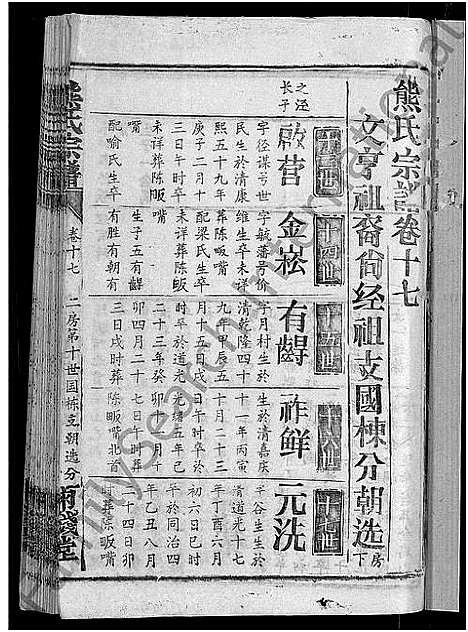 熊氏宗譜卷十七
文亨祖裔尙经祖支國棟分朝选房下
十三世
之泾长子
啟营
字径谋号世
民生於清康
熙五十九年
庚子二月十
三日午时卒
未详葬陈畈
嘴
配喻氏生卒
十四世
金崧
字毓藩号价
维生卒未详
葬陈畈嘴
配梁氏生卒
未详葬陈畈
生子五有齶
有胜有朝有
十五世
有齶
字月村生於
清乾隆四十
九年甲辰五
月十五日戌
时卒於道光
二十三年癸
卯四月二十
三日戌时葬
十六世
祚鲜
生於清嘉庆
十一年丙寅
十月二十三
日午时卒於
光绪五年己
卯十一月十
七日午时葬
陈畈嘴北首
十七世
元洗
字谷生生於
清道光十七
年丁酉六月
初六日巳时
卒於同治四
年乙丑八月
二十四日卯
时葬陈畈嘴
熊氏宗譜
卷十七
二房第十世国栋支朝选分
FamilySearch International